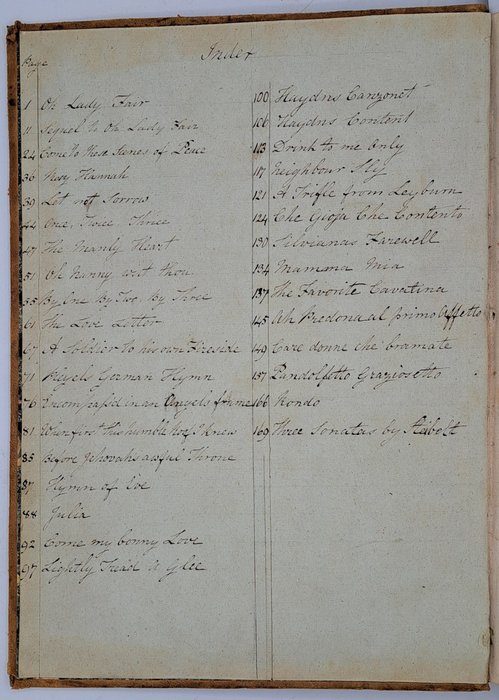 Index
Page
1 Oh Lady Fair
11 Sequel to Oh Lady Fair
24 Come to these Scenes of Peace
36 Hannah
39 Let not Sorrow
44 Once, Twice Three
47 The Manly Heart
51 Oh Nanny wilt thou
55 By One By Two By Three
61 The Love Letter
67 A Soldier to his own Fireside
71 Pleyels German Hymn
76 Encompass'd in an Angels frame
81 When first this humble roof I knew
85 Before Jehovahs awful Throne
87 Hymn of Eve
88 Julia
92 Come my bonny Love
97 Lightly Tread a Glee
100 Haydns Canzonet
106 Haydns Content
113 Drink to me Only
117 Neighbour Sly
121 A Trifle from Leyburn
124 Che Gioja Che Contento
130 Silvianas Farewell
134 Mamma Mia
137 The Favorite Cavatina
145 Ah Predona al primo Affetto
149 Care donne che bramate
157 Pandolfetto Graziosetto
166 Rondo
169 Three Sonatas by